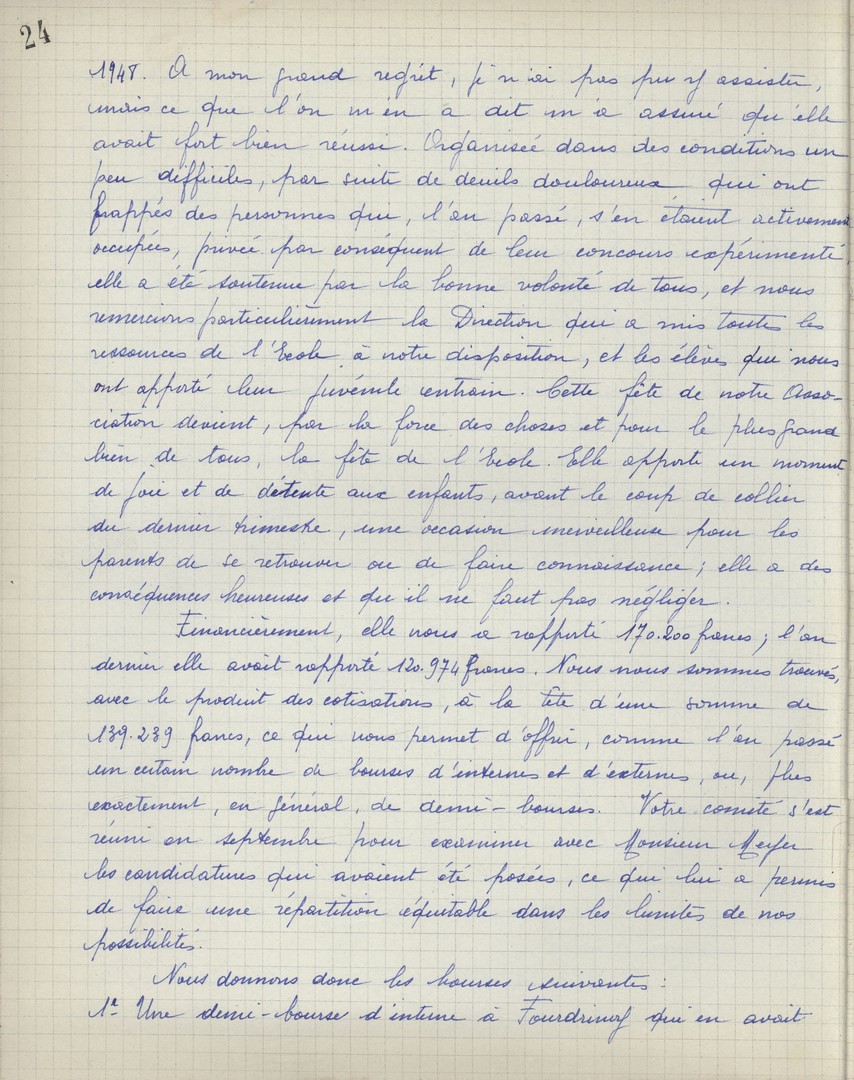 24
1948. A mon grand regrêt, je n'ai pas pu y assister,
mais ce que l'on m'en a dit m'a assuré qu'elle
avait fort bien réussi. Organisée dans des conditions un
peu difficiles, par suite de deuils douloureux qui ont
frappés des personnes que, l'an passé, s'en étaient activement
occupées, privée par conséquent de leur concours expérimenté,
elle a été soutenue par la bonne volonté de tous, et nous
remercions particulièrement la Direction qui a mis toutes les
ressources de l'Ecole à notre disposition, et les élèves qui nous
ont apporté leur juvénile entrain. Cette fête de notre Asso-
ciation devient, par la force des choses et pour le plus grand
bien de tous, la fête de l'Ecole. Elle apporte un moment
de joie et de détente aux enfants, avant le coup de collier
du dernier trimestre, une occasion merveilleuse pour les
parents de se retrouver ou de faire connaissance ; elle a des
conséquences heureuses et qu'il ne faut pas négliger.
Financièrement, elle nous a rapporté 170.200 francs ; l'an
dernier elle avait rapporté 120.974 francs. Nous nous sommes trouvés,
avec le produit des cotisations, à la tête d'une somme de
139.239 francs, ce qui nous permet d'offrir, comme l'an passé
un certain nombre de bourses d'internes et d'externes, ou, plus
exactement, en général, de demi-bourses. Votre comité s'est
réuni en septembre pour examiner avec Monsieur Meyer
les candidatures qui avaient été posées, ce qui lui a permis
de faire une répartition équitable dans les limites de nos
possibilités.
Nous donnons donc les bourses suivantes :
1º- Une demi-bourse d'interne à Fourdrinoy qui en avait